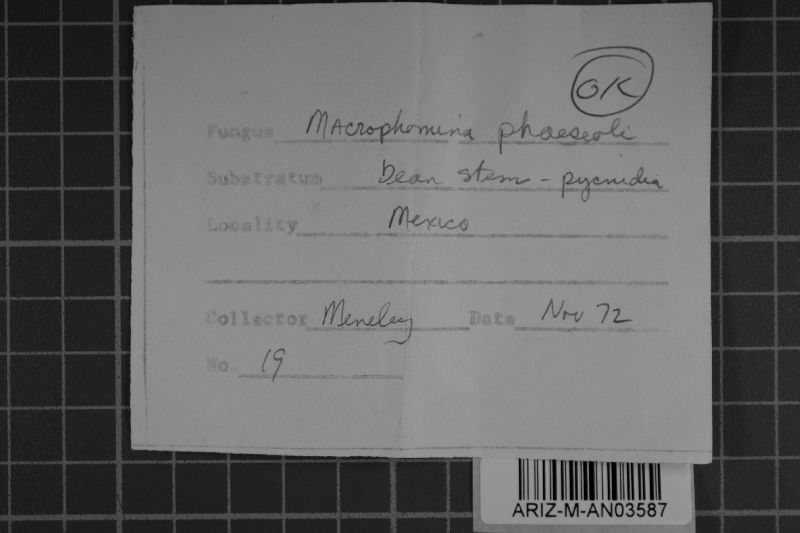 OK
Fungus Macrophomina phaeseoli
Substratum bean stem - pycnidia
Locality Mexico
Collector Meneley Date Nov 72
No. 19
ARIZ-M-AN03587